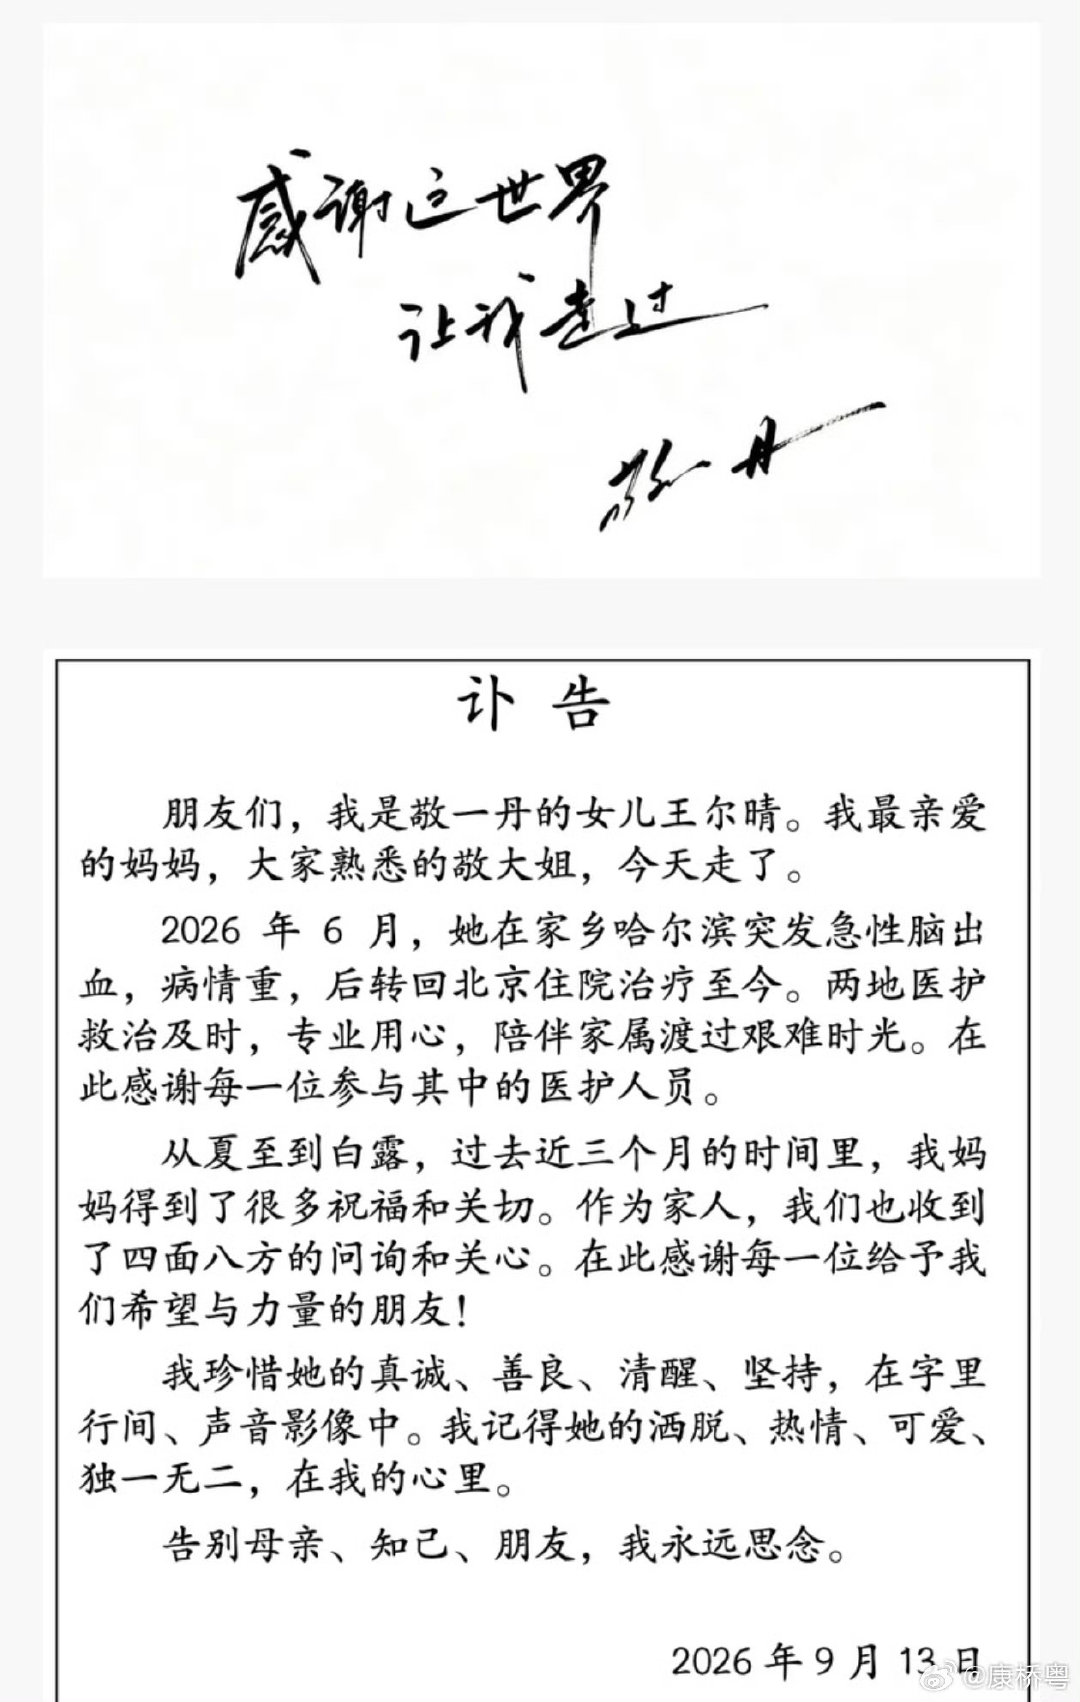 感谢这世界
让我走过
敬一丹
讣告
朋友们，我是敬一丹的女儿王尔晴。我最亲爱
的妈妈，大家熟悉的敬大姐，今天走了。
2026 年 6 月，她在家乡哈尔滨突发急性脑出
血，病情重，后转回北京住院治疗至今。两地医护
救治及时，专业用心，陪伴家属渡过艰难时光。在
此感谢每一位参与其中的医护人员。
从夏至到白露，过去近三个月的时间里，我妈
妈得到了很多祝福和关切。作为家人，我们也收到
了四面八方的问询和关心。在此感谢每一位给予我
们希望与力量的朋友！
我珍惜她的真诚、善良、清醒、坚持，在字里
行间、声音影像中。我记得她的洒脱、热情、可爱、
独一无二，在我的心里。
告别母亲、知己、朋友，我永远思念。
2026 年 9 月 13 日
@康桥粤